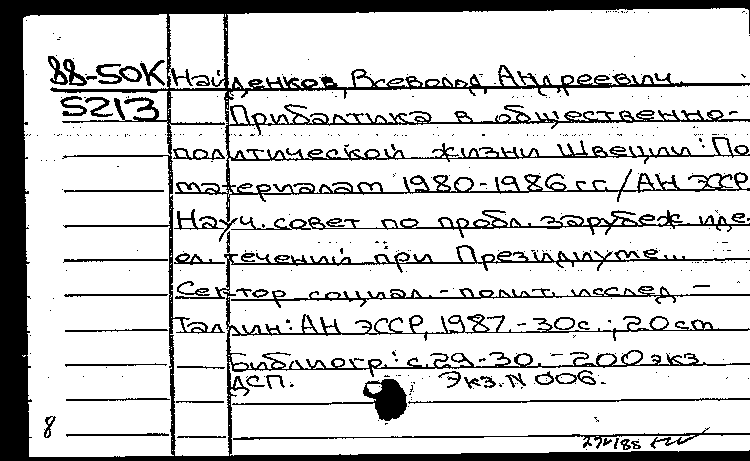 88-50К Найденков, Всеволод Андреевич.
5213 Прибалтика в общественно-
политической жизни Швеции: По
материалам 1980-1986 гг. / АН ЭССР.
Науч. совет по пробл. зарубеж иде-
ол. течений при Президиуме...
Сектор социал.-полит. исслед. -
Таллин: АН ЭССР, 1987. - 30с.; 20 cm
Библиогр.: с.29-30. - 200 экз.
ДСП. Экз. N 006.
8